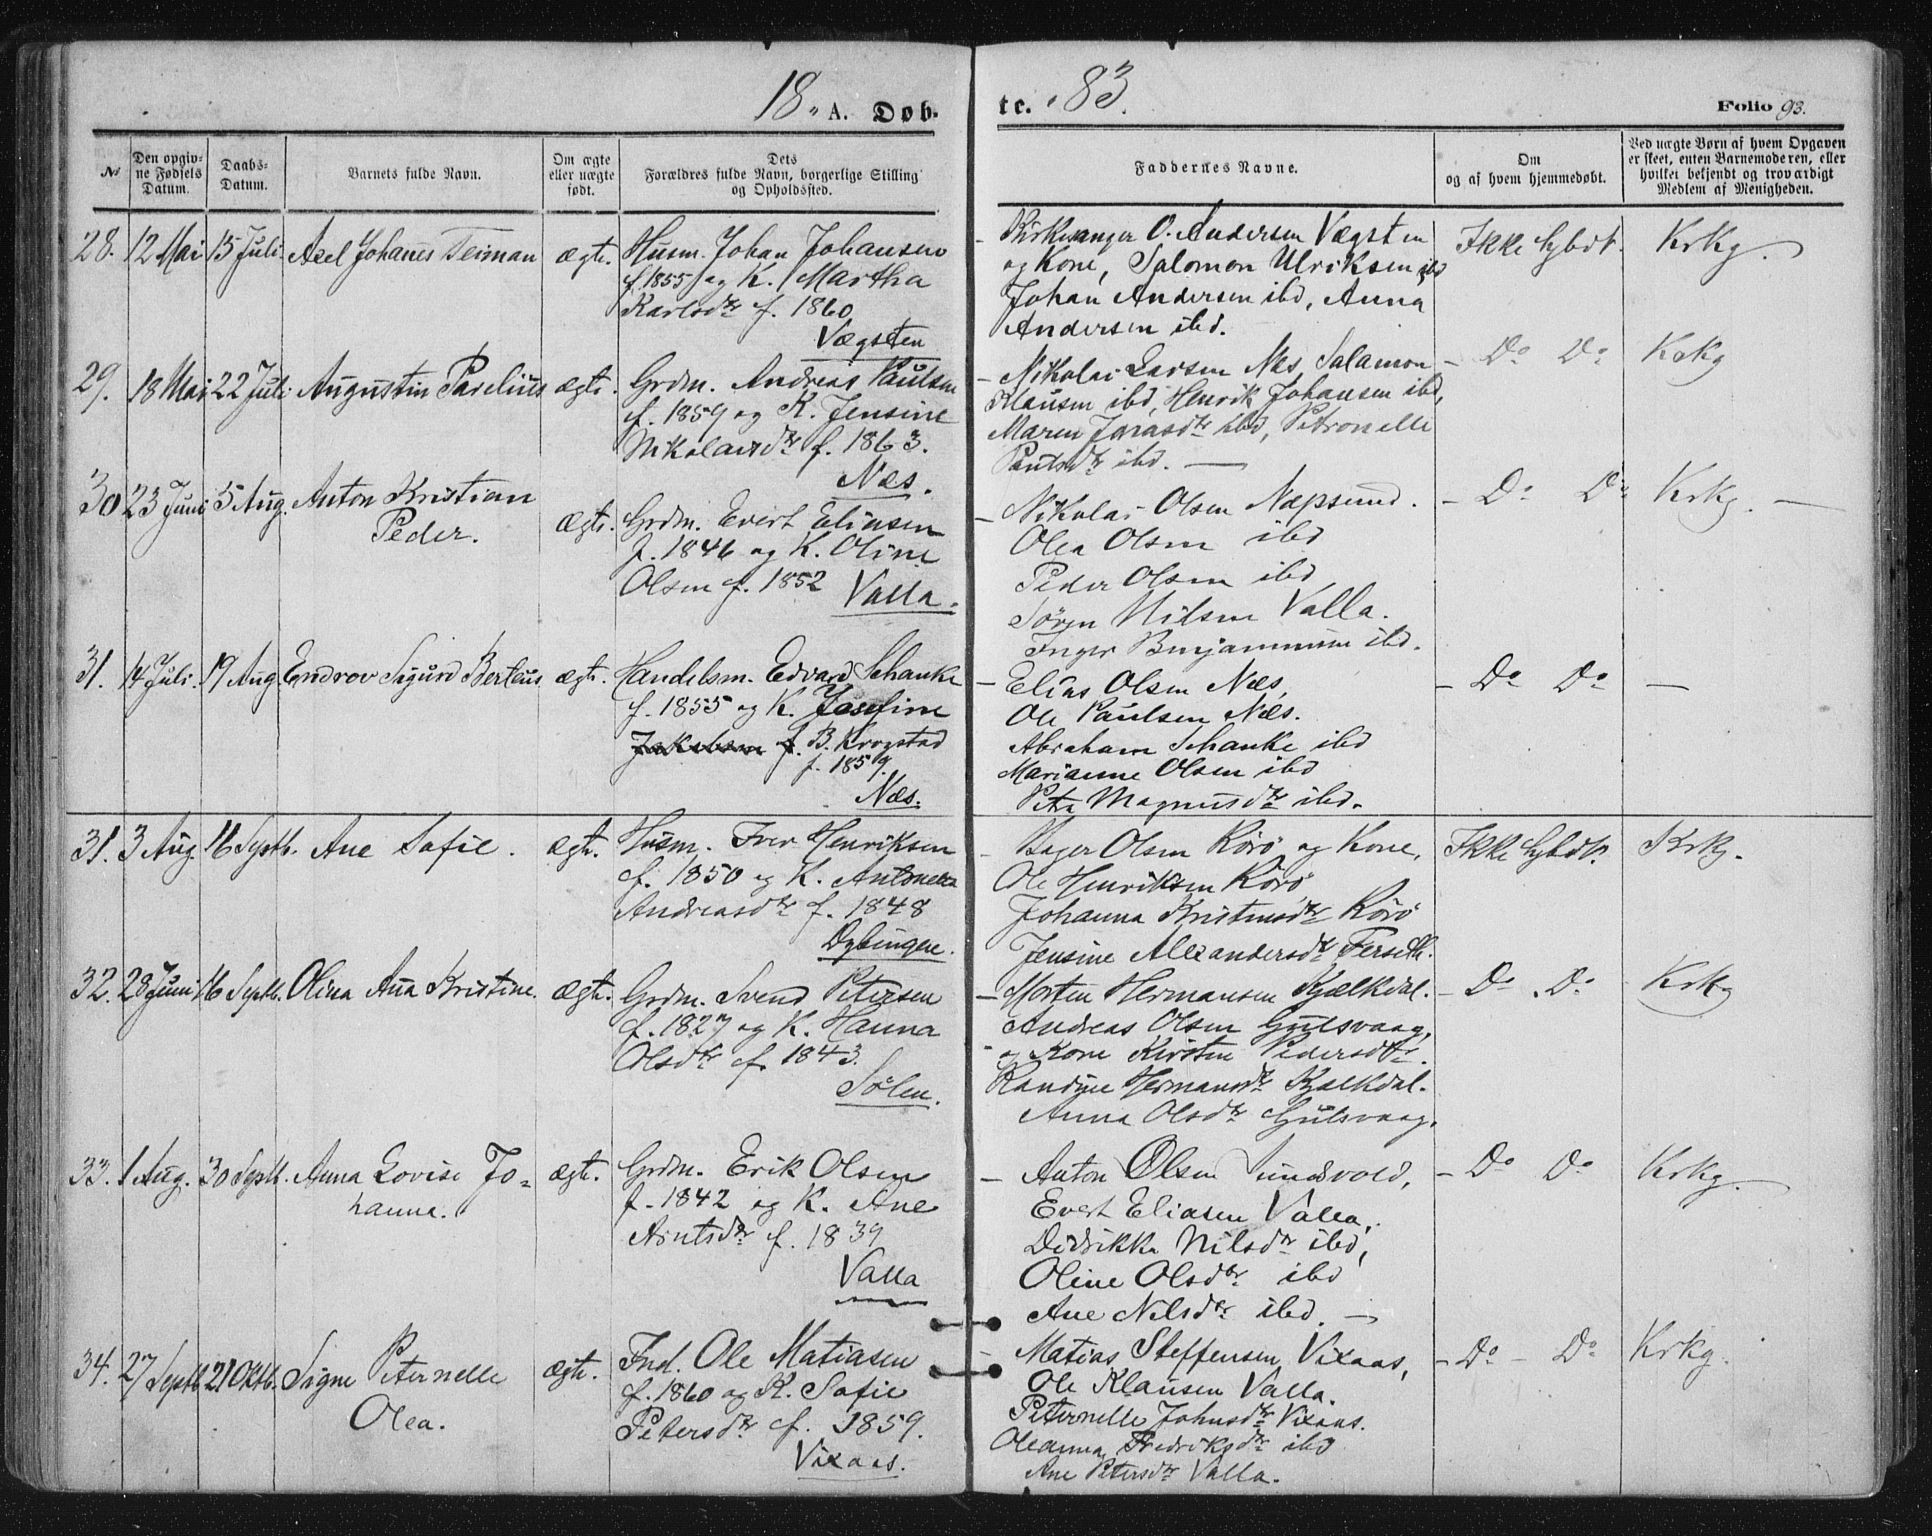 18 A. Døb-
te. 83.
Folio 93.
No
Den opgiv-
ne Fødsels
Datum.
Daabs-
Datum.
Barnets fulde Navn.
Om ægte
eller uægte
født.
Dets
Forældres fulde Navn, borgerlige Stilling
og Opholdssted.
Faddernes Navne.
Om
og af hvem hjemmedøbt.
Ved uægte Børn af hvem Opgaven
er skeet, enten Barnemoderen, eller
hvilket bekjendt og troværdigt
Medlem af Menigheden.
28. 12 Mai 15 Juli Axel Johanes Teiman ægte.
Husm. Johan Johansen
f. 1855 og K. Martha
Karlsdtr f. 1860
Vægsten
Kirkesanger O. Andersen Vægsten
og Kone, Salomon Ulriksen ibd
Johan Andersen ibd, Anna
Andersen ibd.
Ikke hjbdt. Krkg.
29. 18 Mai 22 Juli Augustin Parelius ægte.
Grdm. Andreas Paulsen
f. 1859 og K. Jensine
Nikolaisdtr f. 1863.
Næs.
- Nikolai Larsen Næs, Salamon
Klausen ibd, Henrik Johansen ibd,
Maren Jonasdtr ibd, Petronelle
Paulsdtr ibd. —
- Do Do Krkg
30 23 Juni 5 Aug. Anton Kristian
Peder. ægte.
Grdm. Evert Eliasen
f. 1846 og K. Oline
Olsen f. 1852 Valla.
- Nikolai Olsen Napsund.
Olea Olsen ibd
Peder Olsen ibd
Sören Nilsen Valla.
Inger Benjaminsen ibd.
- Do Do Krkg. —
31. 14 Juli. 19 Aug. Endrov Sigurd Berteus ægte.
Handelsm. Edvard Schanke
f. 1855 og K. Josefine
Jakobsen f. B. Krogstad
f. 1859.
Næs.
- Elias Olsen Næs,
Ole Paulsen Næs.
Abraham Schanke ibd
Marianne Olsen ibd
Petra Magnusdtr ibd.
- Do Do —
31. 3 Aug. 16 Septb. Ane Sofie. ægte.
Husm. Iver Henriksen
f. 1850 og K. Antonella
Andreasdtr f. 1848
Dybingen.
- Hager Olsen Rörö og Kone,
Ole Henriksen Rörö
Johanna Kristensdtr Rörö
Jensine Alexandersdtr Ferseth.
Ikke hjbdt. Krkg.
32. 28 Juni 16 Septb. Olina Ana Kristine. ægte.
Grdm. Svend Petersen
f. 1827 og K. Hanna
Olsdtr f. 1843.
Sölen.
- Morten Hermansen Kjælkdal.
Andreas Olsen Gulsvaag,
og Kone Kirsten Pedersdtr.
Randine Hermansdtr Kjelkdal.
Anna Olsdtr Gulsvaag.
- Do Do Krkg
33. 1 Aug. 30 Septb. Anna Lovise Jo-
hanna. ægte.
Grdm. Erik Olsen
f. 1842 og K. Ane
Arntsdtr f. 1839
Valla
- Anton Olsen Sundsvold,
Evert Eliasen Valla,
Didrikke Nilsdtr ibd,
Oline Olsdtr ibd
Ane Nilsdtr ibd. —
- Do Do Krkg.
34. 27 Septb. 21 Oktb. Signe Peternelle
Olea. ægte.
Ind. Ole Matiasen
f. 1860 og K. Sofie
Petersdtr f. 1859.
Vixaas.
- Matias Steffensen Vixaas,
Ole Klausen Valla.
Peternelle Johnsdtr Vixaas.
Oleanna Fredriksdtr ibd
Ane Petersdtr Valla.
- Do - Do Krkg.